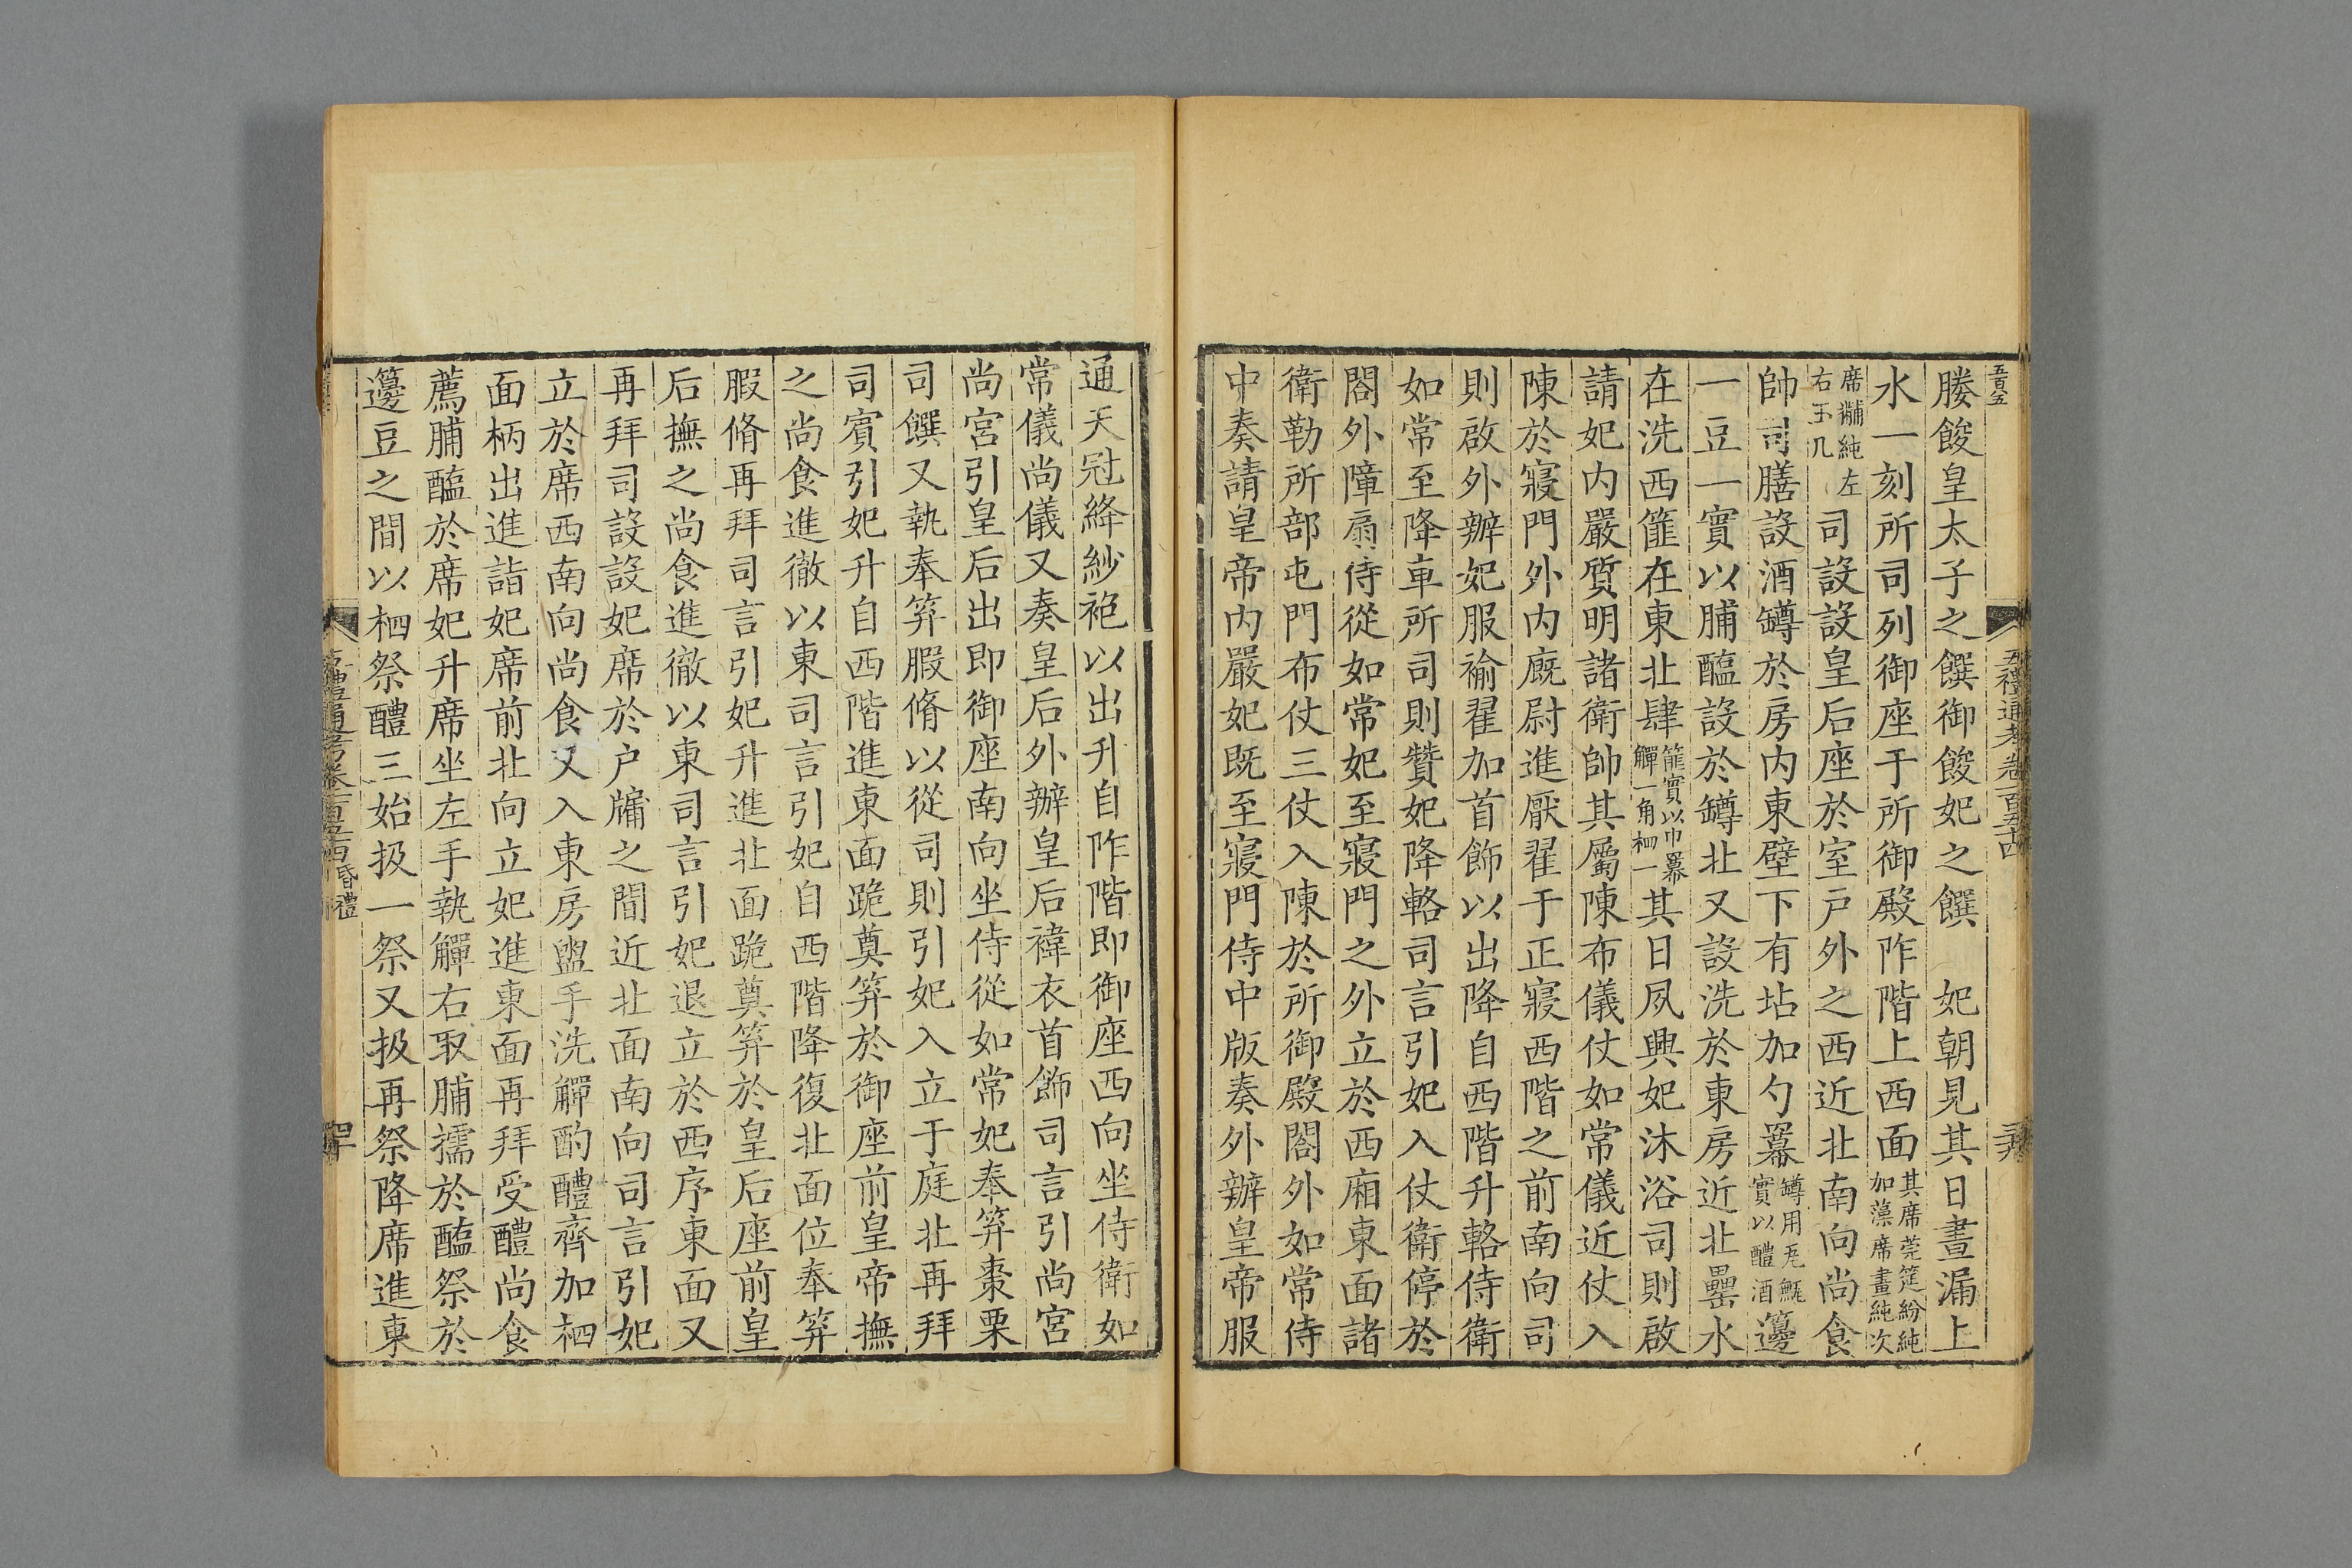 五百五
五禮通考卷一百五十四
媵餕皇太子之饌御餕妃之饌　妃朝見其日晝漏上
水一刻所司列御座于所御殿阼階上西面其席莞筵紛純加藻席畫純次
席黼純左右玉几司設設皇后座於室戸外之西近北南向尚食
帥司膳設酒罇於房内東壁下有坫加勺羃罇用𤬪甒實以醴酒籩
一豆一實以脯醢設於罇北又設洗於東房近北罍水
在洗西篚在東北肆篚實以巾羃觶一角柶一其日夙興妃沐浴司則啟
請妃内嚴質明諸衛帥其屬陳布儀仗如常儀近仗入
陳於寢門外内廐尉進厭翟于正寢西階之前南向司
則啟外辦妃服褕翟加首飾以出降自西階升輅侍衛
如常至降車所司則贊妃降輅司言引妃入仗衛停於
閤外障扇侍從如常妃至寢門之外立於西廂東面諸
衛勒所部屯門布仗三仗入陳於所御殿閤外如常侍
中奏請皇帝内嚴妃既至寢門侍中版奏外辦皇帝服
通天冠絳紗袍以出升自阼階即御座西向坐侍衛如
常儀尚儀又奏皇后外辦皇后褘衣首飾司言引尚宮
尚宮引皇后出即御座南向坐侍從如常妃奉笲棗栗
司饌又執奉笲腶脩以從司則引妃入立于庭北再拜
司賓引妃升自西階進東面跪奠笲於御座前皇帝撫
之尚食進徹以東司言引妃自西階降復北面位奉笲
腶脩再拜司言引妃升進北面跪奠笲於皇后座前皇
后撫之尚食進徹以東司言引妃退立於西序東面又
再拜司設設妃席於户牖之間近北面南向司言引妃
立於席西南向尚食又入東房盥手洗觶酌醴齊加柶
面柄出進詣妃席前北向立妃進東面再拜受醴尚食
薦脯醢於席妃升席坐左手執觶右取脯擩於醢祭於
籩豆之間以柶祭醴三始扱一祭又扱再祭降席進東
五禮通考卷一百五十四昏禮
四十